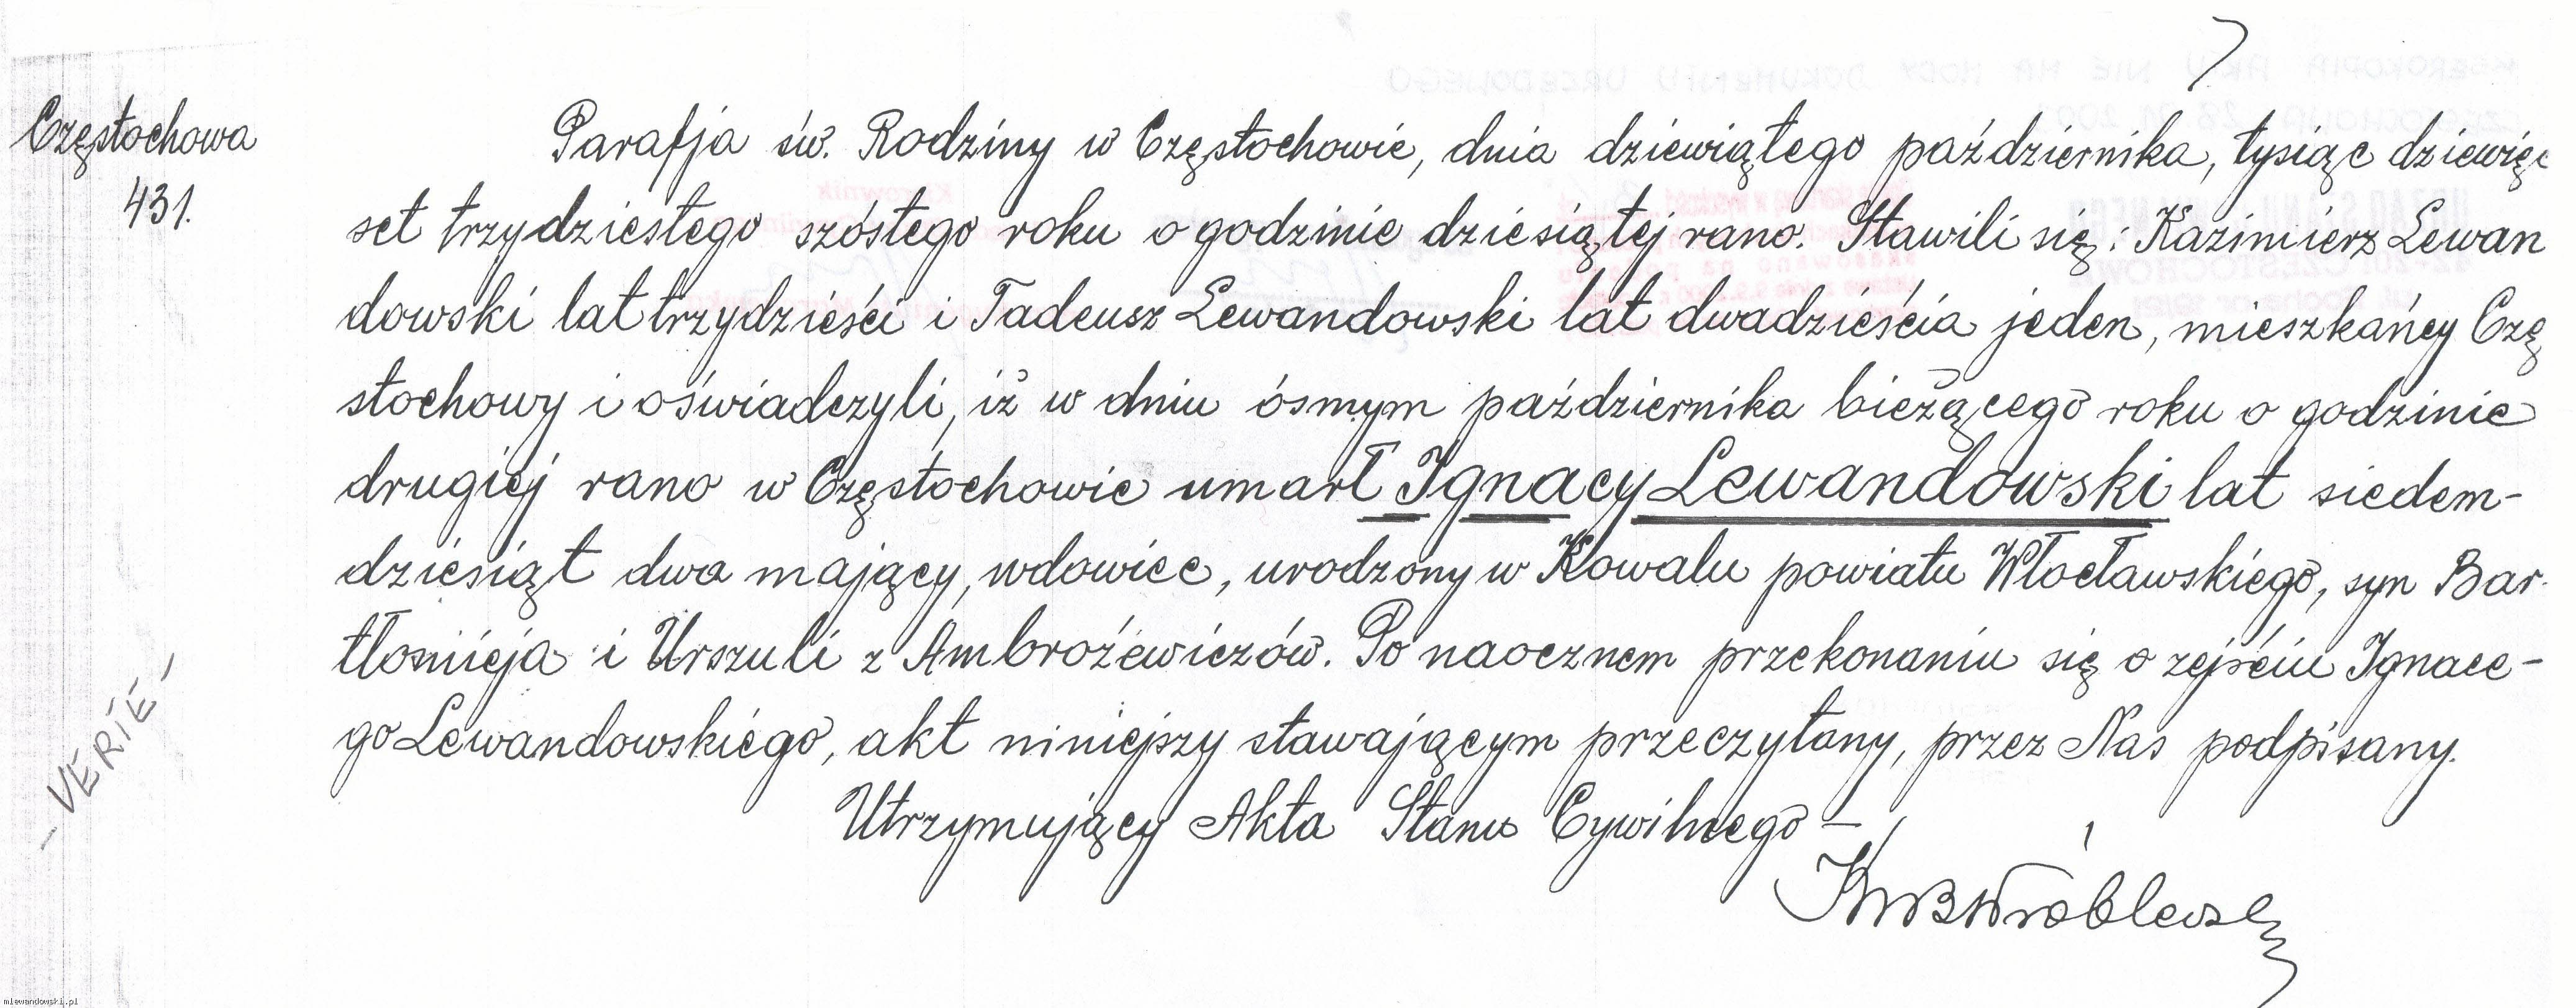 Częstochowa
431.
Parafja św. Rodziny w Częstochowie, dnia dziewiątego października, tysiąc dziewięć
set trzydziestego szóstego roku o godzinie dziesiątej rano. Stawili się: Kazimierz Lewan
dowski lat trzydzieści i Tadeusz Lewandowski lat dwadzieścia jeden, mieszkańcy Czę
stochowy i oświadczyli, iż w dniu ósmym października bieżącego roku o godzinie
drugiej rano w Częstochowie umarł Ignacy Lewandowski lat siedem-
dziesiąt dwa mający, wdowiec, urodzony w Kowalu powiatu Włocławskiego, syn Bar-
tłomieja i Urszuli z Ambroźewiczów. Po naocznem przekonaniu się o zejściu Ignace-
go Lewandowskiego, akt niniejszy stawającym przeczytany, przez Nas podpisany.
Utrzymujący Akta Stanu Cywilnego –
- VERTE -
mlewandowski.pl